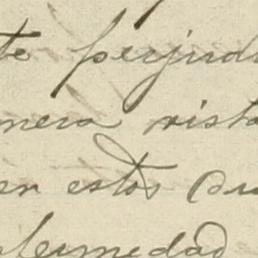 te perjudi
mera vista
en estos cu
nfermedad